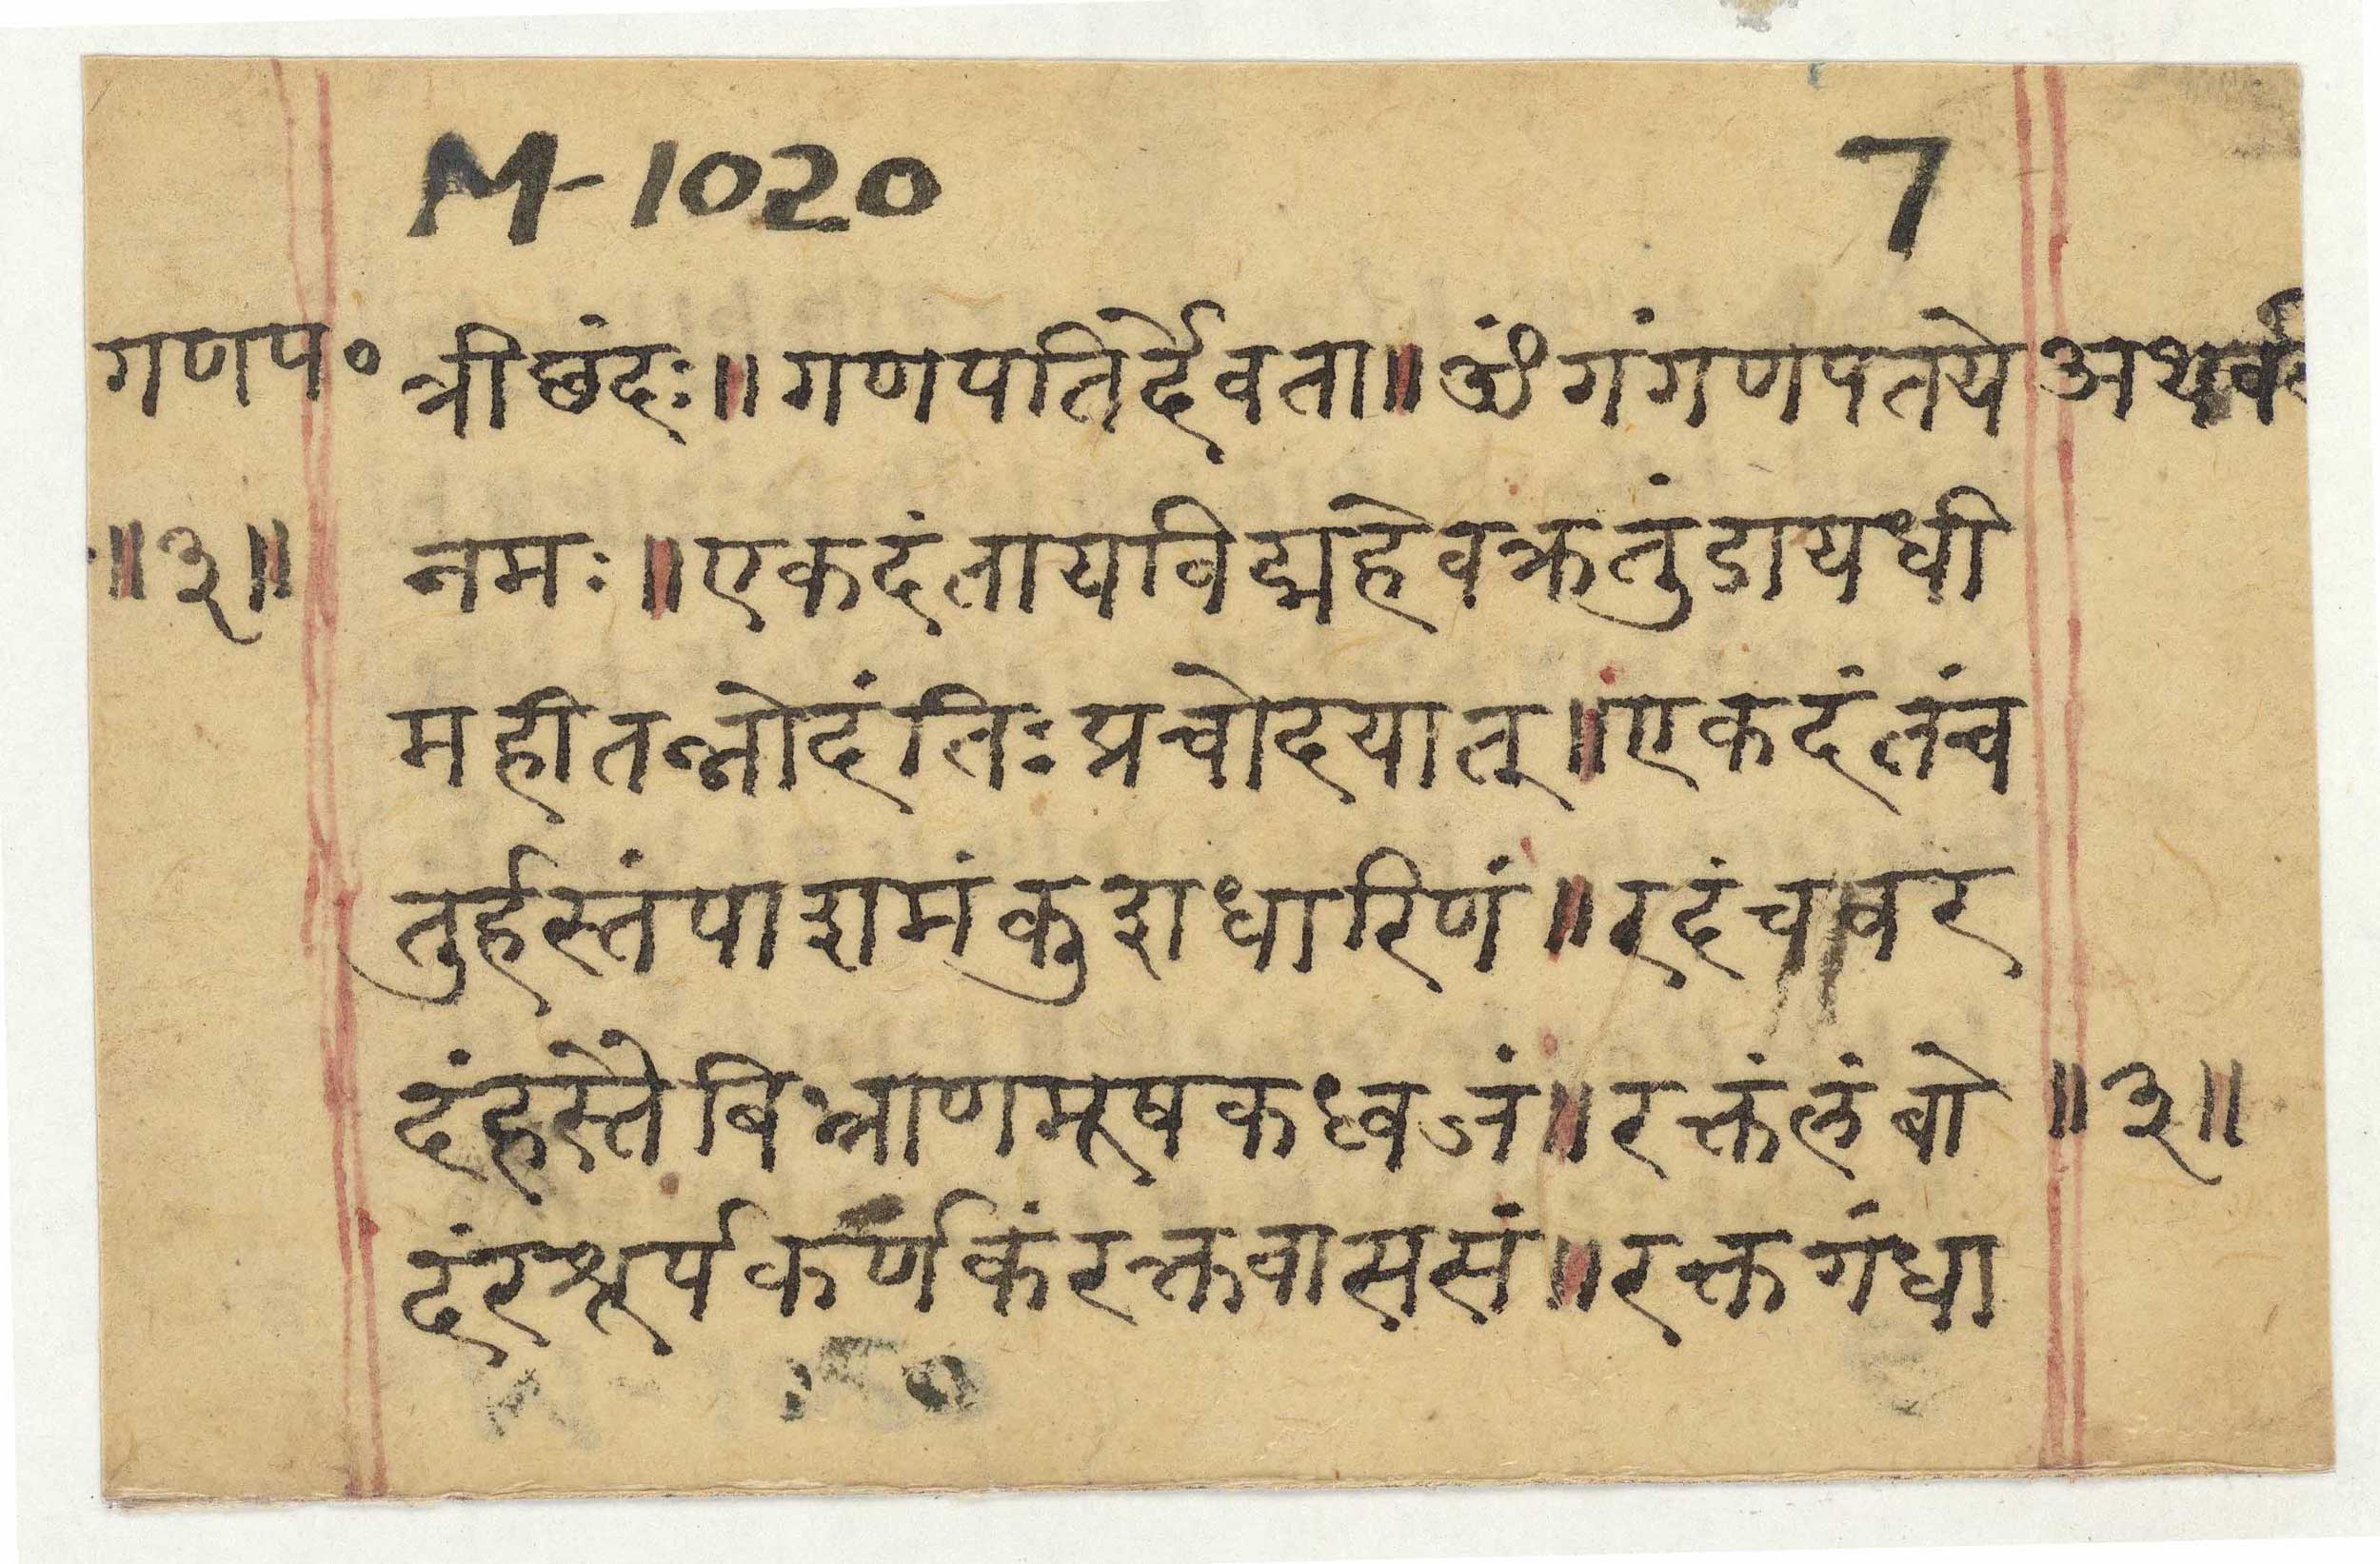 M-1020 7
गणप० त्रीछंदः॥गणपतिर्देवता॥ॐगंगणपतये अथर्व
॥३॥ नमः॥एकदंतायविद्महेवक्रतुंडायधी
महीतन्नोदंतिःप्रचोदयात्॥एकदंतंच
तुर्हस्तंपाशमंकुशधारिणं॥रदंचवर
दंहस्तैबिभ्राणमूषकध्वजं॥रक्तंलंबो ॥३॥
दंरशूर्पकर्णकंरक्तवाससं॥रक्तगंधा